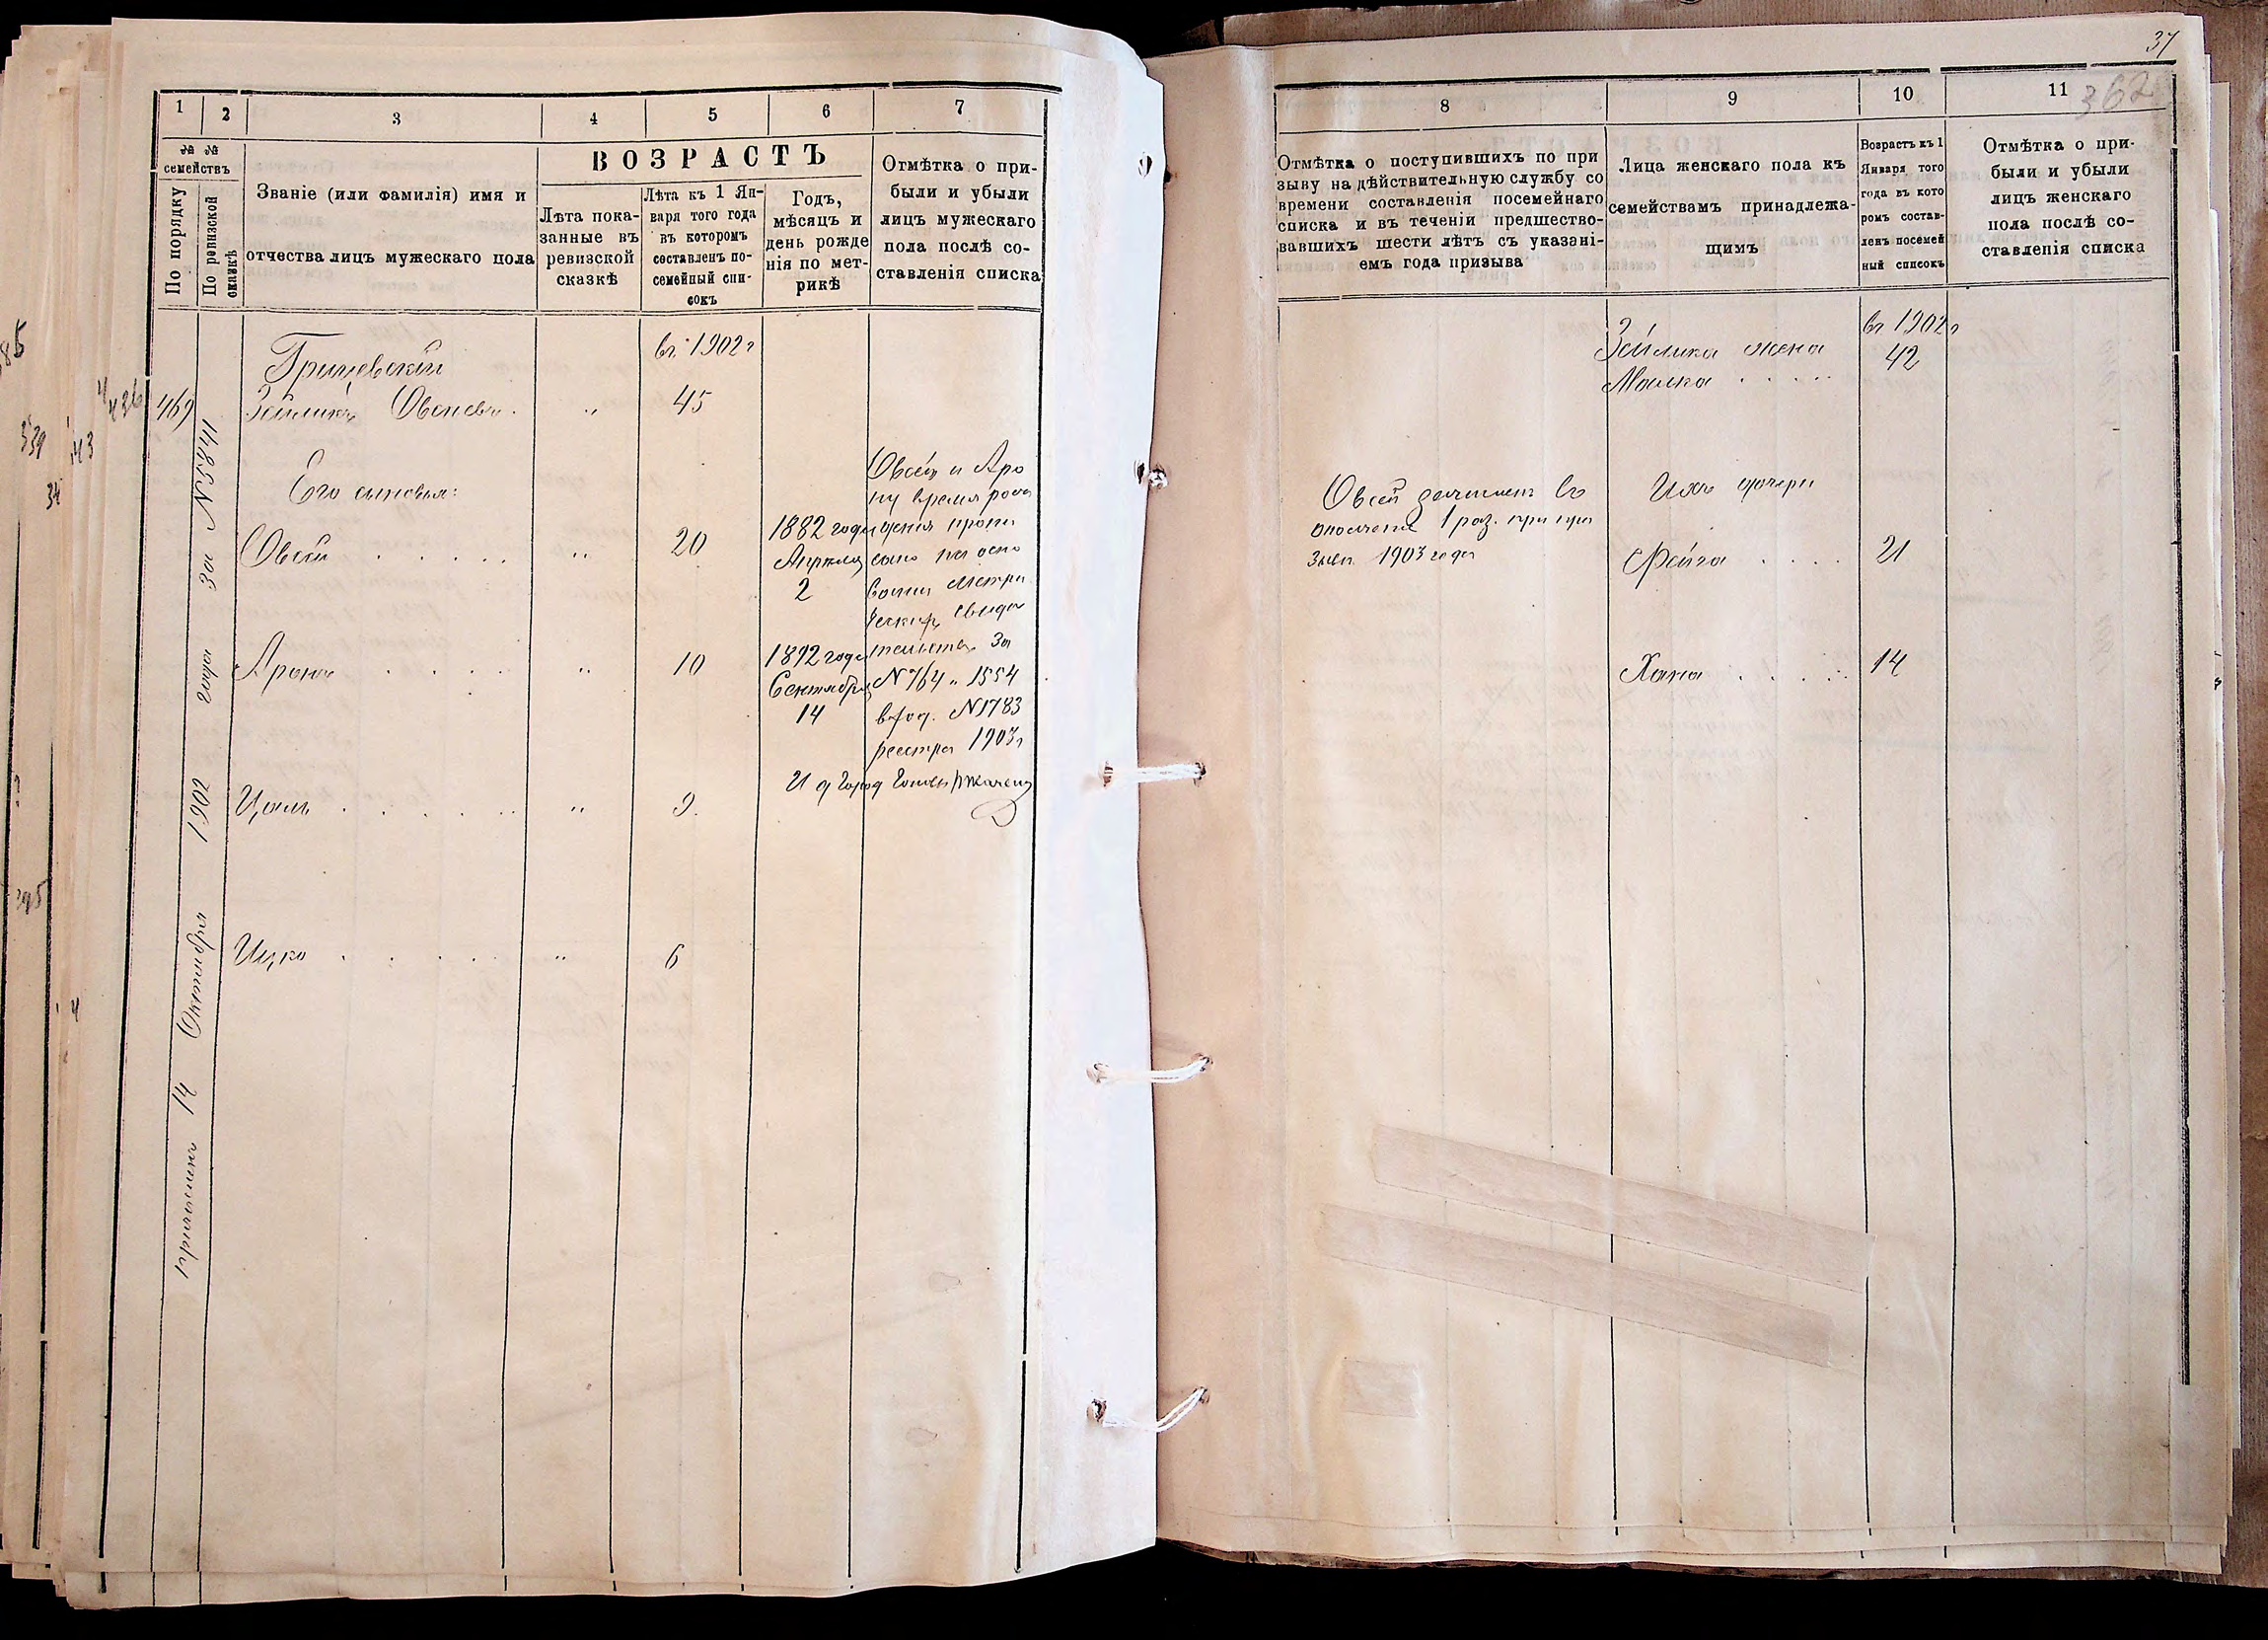 1
2
3
4
5
6
7
№ №
семействъ
По порядку
По ревизской
сказкѣ
Званіе (или фамилія) имя и
отчества лицъ мужескаго пола
ВОЗРАСТЪ
Лѣта пока-
занные въ
ревизской
сказкѣ
Лѣта къ 1 Ян-
варя того года
въ которомъ
составленъ по-
семейный спи-
сокъ
Годъ,
мѣсяцъ и
день рожде
нія по мет-
рикѣ
Отмѣтка о при-
были и убыли
лицъ мужескаго
пола послѣ со-
ставленія списка
въ 1902 г
469
Зеликъ Овсеевъ
45
Его сыновья:
Овсей
20
1882 года
Апреля
2
Аронъ
10
1892 года
Сентября
14
9
Ицко
6
Овсею и Аро
ну время рож
дения пропи
сано на осно
вании метри
ческихъ свиде
тельствъ за
№ 764 и 1554
вход. № 1783
реестра 1903 г
причисленъ 14 Октября 1902 года За № 5841
436
339
34
43
395
4
37
362
8
9
10
11
Отмѣтка о поступившихъ по при
зыву на дѣйствительную службу со
времени составленія посемейнаго
списка и въ теченіи предшество-
вавшихъ шести лѣтъ съ указані-
емъ года призыва
Лица женскаго пола къ
семействамъ принадлежа-
щимъ
Возрастъ къ 1
Января того
года въ кото
ромъ состав-
ленъ посемей
ный списокъ
Отмѣтка о при-
были и убыли
лицъ женскаго
пола послѣ со-
ставленія списка
въ 1902 г
Зелика жена
Малка
42
Овсей зачисленъ въ
ополчение 1 раз. при при
зыве 1903 года
Ихъ дочери
Фейга
21
Хана
14